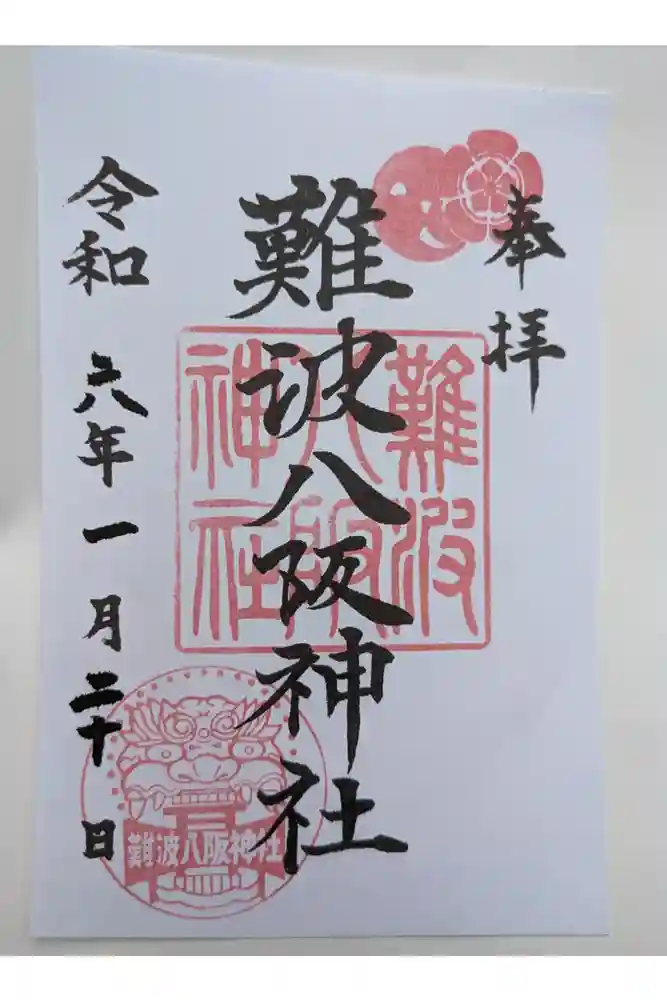 奉拝
難波八阪神社
難波
八阪
神社
令和六年一月二十日
難波八阪神社